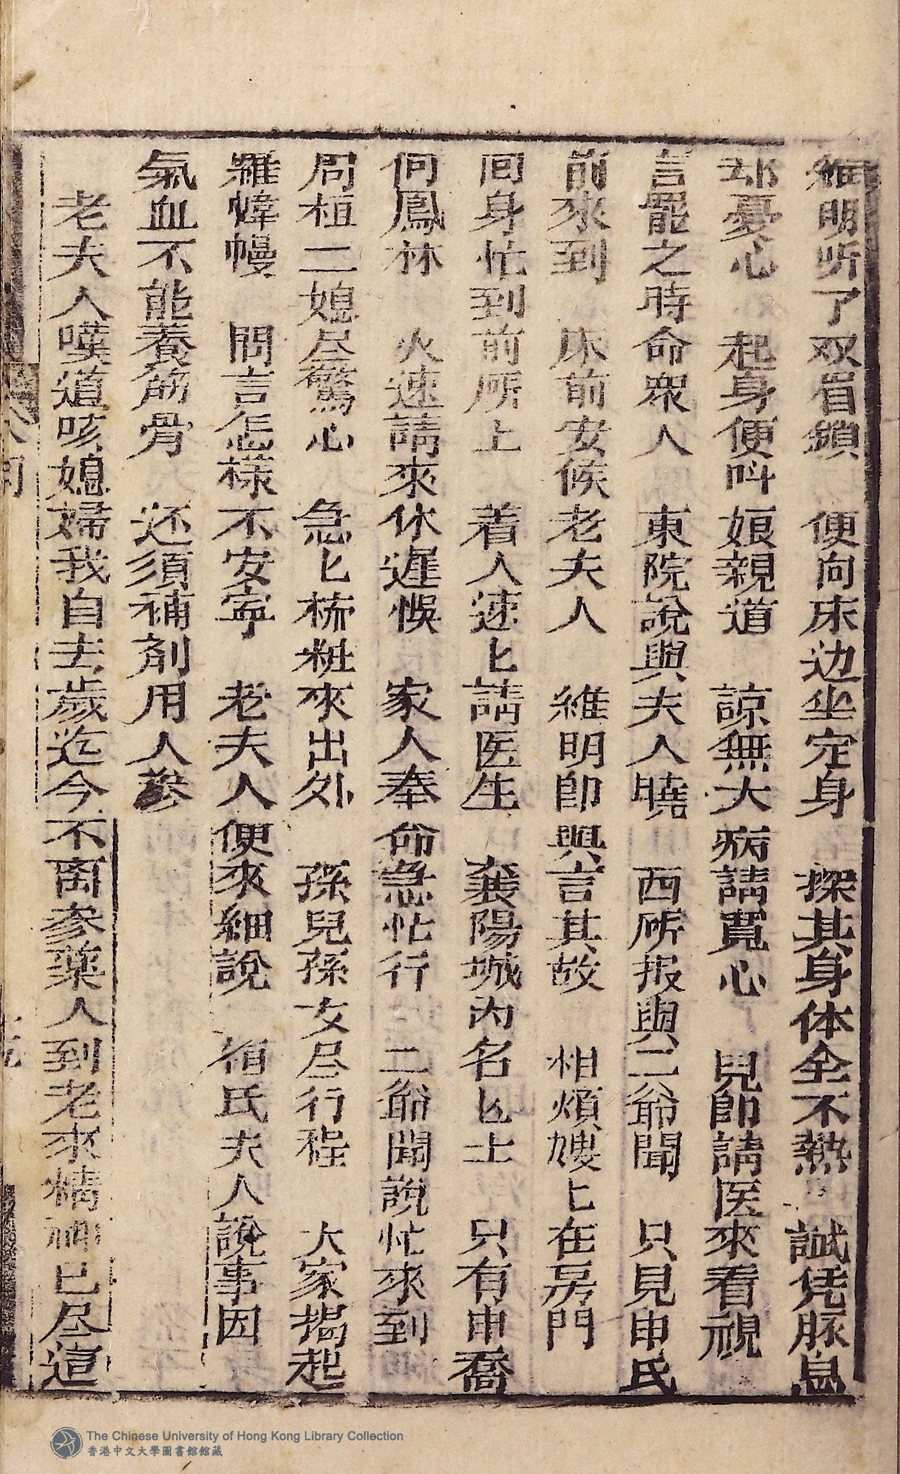 維明听了双眉鎖　便向床边坐定身　探其身体全不熱　誠凭脉息
却憂心　起身便叫娘親道　諒無大病請寬心　兒即請医來看視
言罷之時命衆人　東院說與夫人曉　西所报與二爺聞　只見申氏
前來到　床前安候老夫人　維明即與言其故　相煩嫂匕在房門
囘身忙到前所上　着人速匕請医生　襄陽城內名匕士　只有申喬
何鳳林　火速請來休遲悞　家人奉命急忙行　二爺聞說忙來到
周桓二媳尽驚心　急匕梳粧來出外　孫兒孫女尽行程　大家揭起
羅幃幔　問言怎樣不安寧　老夫人便來細說　桓氏夫人說事因
氣血不能養筋骨　还須補剤用人參
老夫人嘆道咳媳婦我自去歲迄今不离参藥人到老來精神已尽這
The Chinese University of Hong Kong Library Collection
香港中文大學圖書館館藏